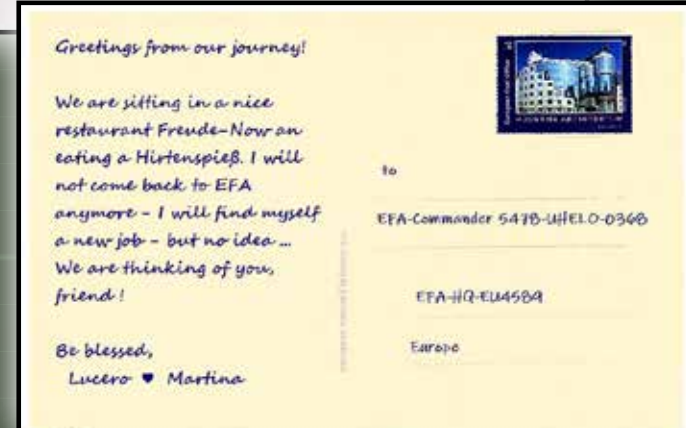 Greetings from our journey!
We are sitting in a nice
restaurant Freude-Now an
eating a Hirtenspieß. I will
not come back to EFA
anymore - I will find myself
a new job - but no idea ...
We are thinking of you,
friend !
Be blessed,
Lucero ♥ Martina
European Post Office
MODERN ARCHITECTURE
to
EFA-Commander 547B-UHELO-036B
EFA-HQ-EU4589
Europe